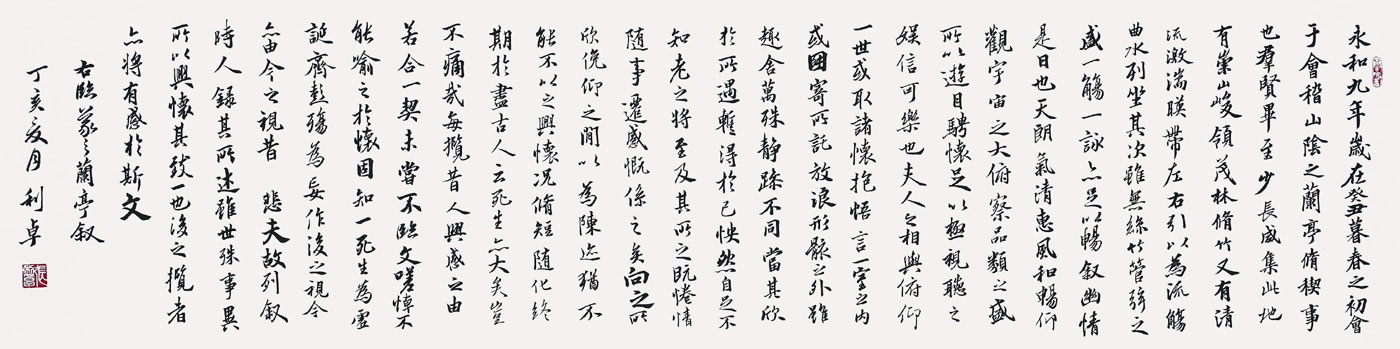 永和九年歲在癸丑暮春之初會
于會稽山陰之蘭亭脩稧事
也羣賢畢至少長咸集此地
有崇山峻領茂林脩竹又有清
流激湍暎帶左右引以為流觴
曲水列坐其次雖無絲竹管弦之
盛一觴一詠亦足以暢叙幽情
是日也天朗氣清惠風和暢仰
觀宇宙之大俯察品類之盛
所以遊目騁懷足以極視聽之
娛信可樂也夫人之相與俯仰
一世或取諸懷抱悟言一室之內
或因寄所託放浪形骸之外雖
趣舍萬殊靜躁不同當其欣
於所遇蹔得於己怏然自足不
知老之將至及其所之既惓情
隨事遷感慨係之矣向之所
欣俛仰之閒以為陳迹猶不
能不以之興懷況脩短隨化終
期於盡古人云死生亦大矣豈
不痛哉每攬昔人興感之由
若合一契未嘗不臨文嗟悼不
能喻之於懷固知一死生為虛
誕齊彭殤為妄作後之視今
亦由今之視昔 悲夫故列叙
時人錄其所述雖世殊事異
所以興懷其致一也後之攬者
亦將有感於斯文
右臨羲之蘭亭叙
丁亥夏月 利卓